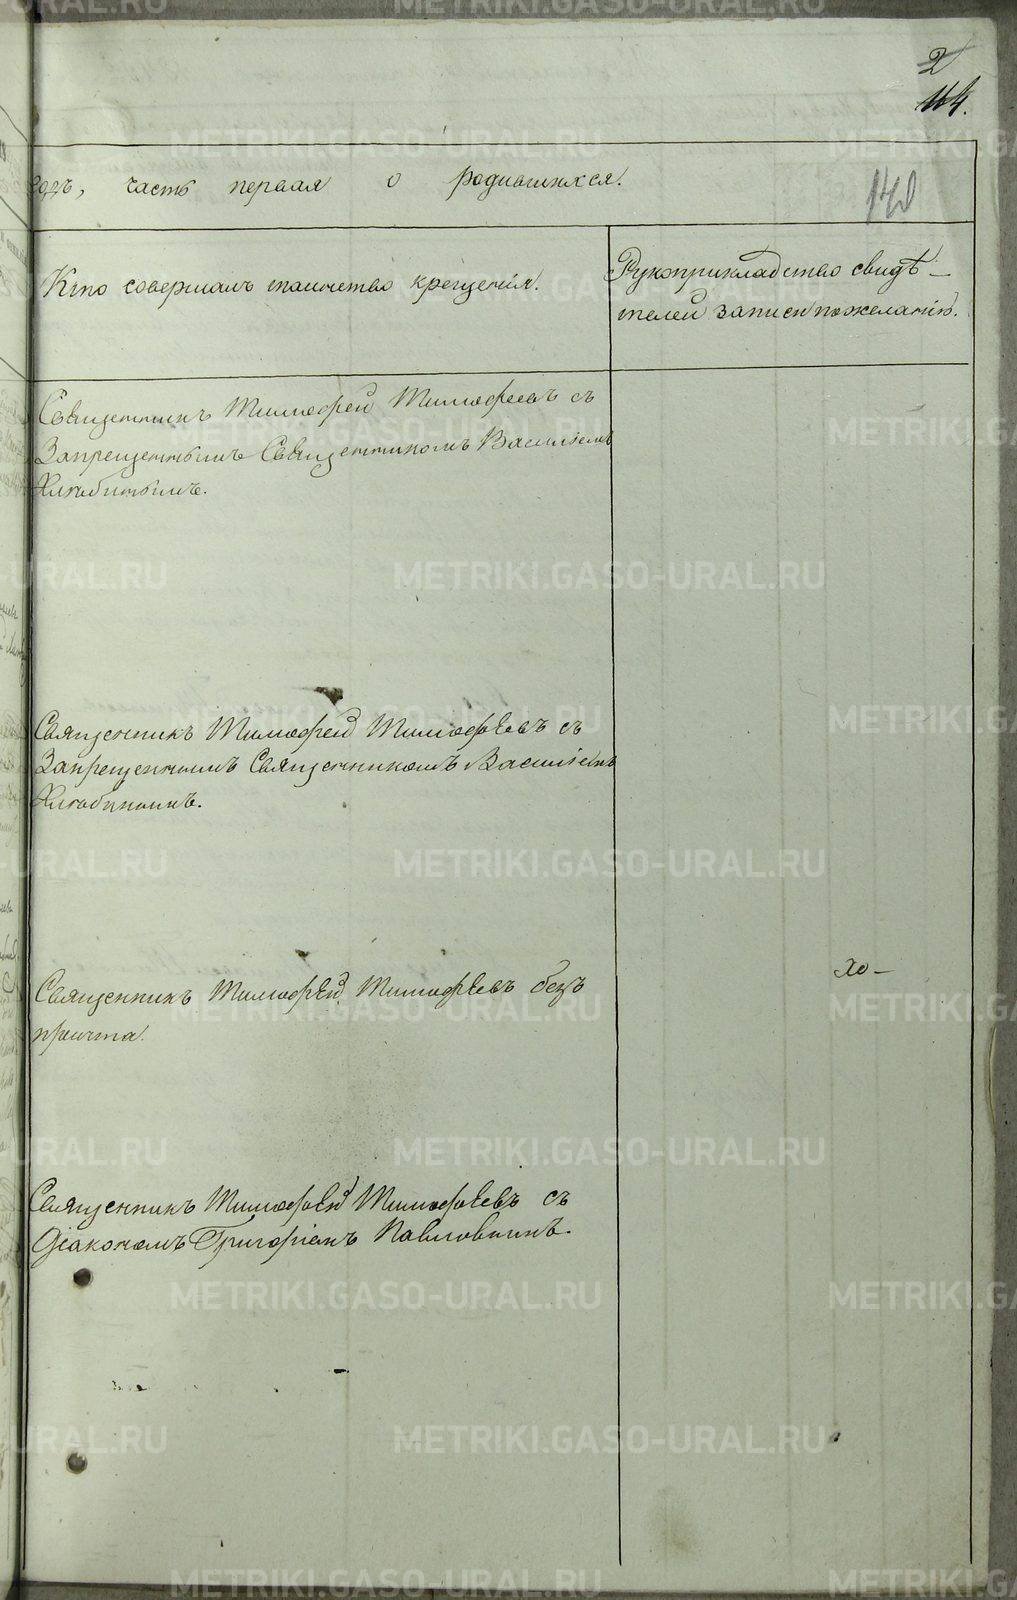 2
114.
140
годъ, часть первая о родившихся.
Кто совершалъ таинство крещенія.
Рукоприкладство свидѣ-
телей записи по желанію.
Священникъ Тимофей Тимофеевъ съ
Запрещеннымъ Священникомъ Василіемъ
Священникъ Тимофей Тимофѣевъ съ
Запрещеннымъ Священникомъ Василіемъ
Священникъ Тимофѣй Тимофѣевъ безъ
причта.
хо-
Священникъ Тимофѣй Тимофѣевъ съ
Діакономъ Григоріемъ Павловымъ.
METRIKI.GASO-URAL.RU